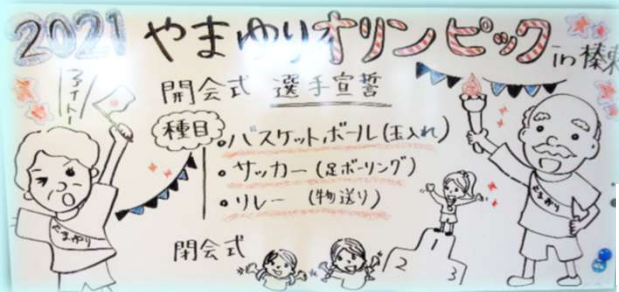 2021 やまゆりオリンピック in 榛東
ファイト!
開会式 選手宣誓
種目
・バスケットボール(玉入れ)
・サッカー(足ボーリング)
・リレー (物送り)
閉会式
やまゆり
やまゆり
1
2 3